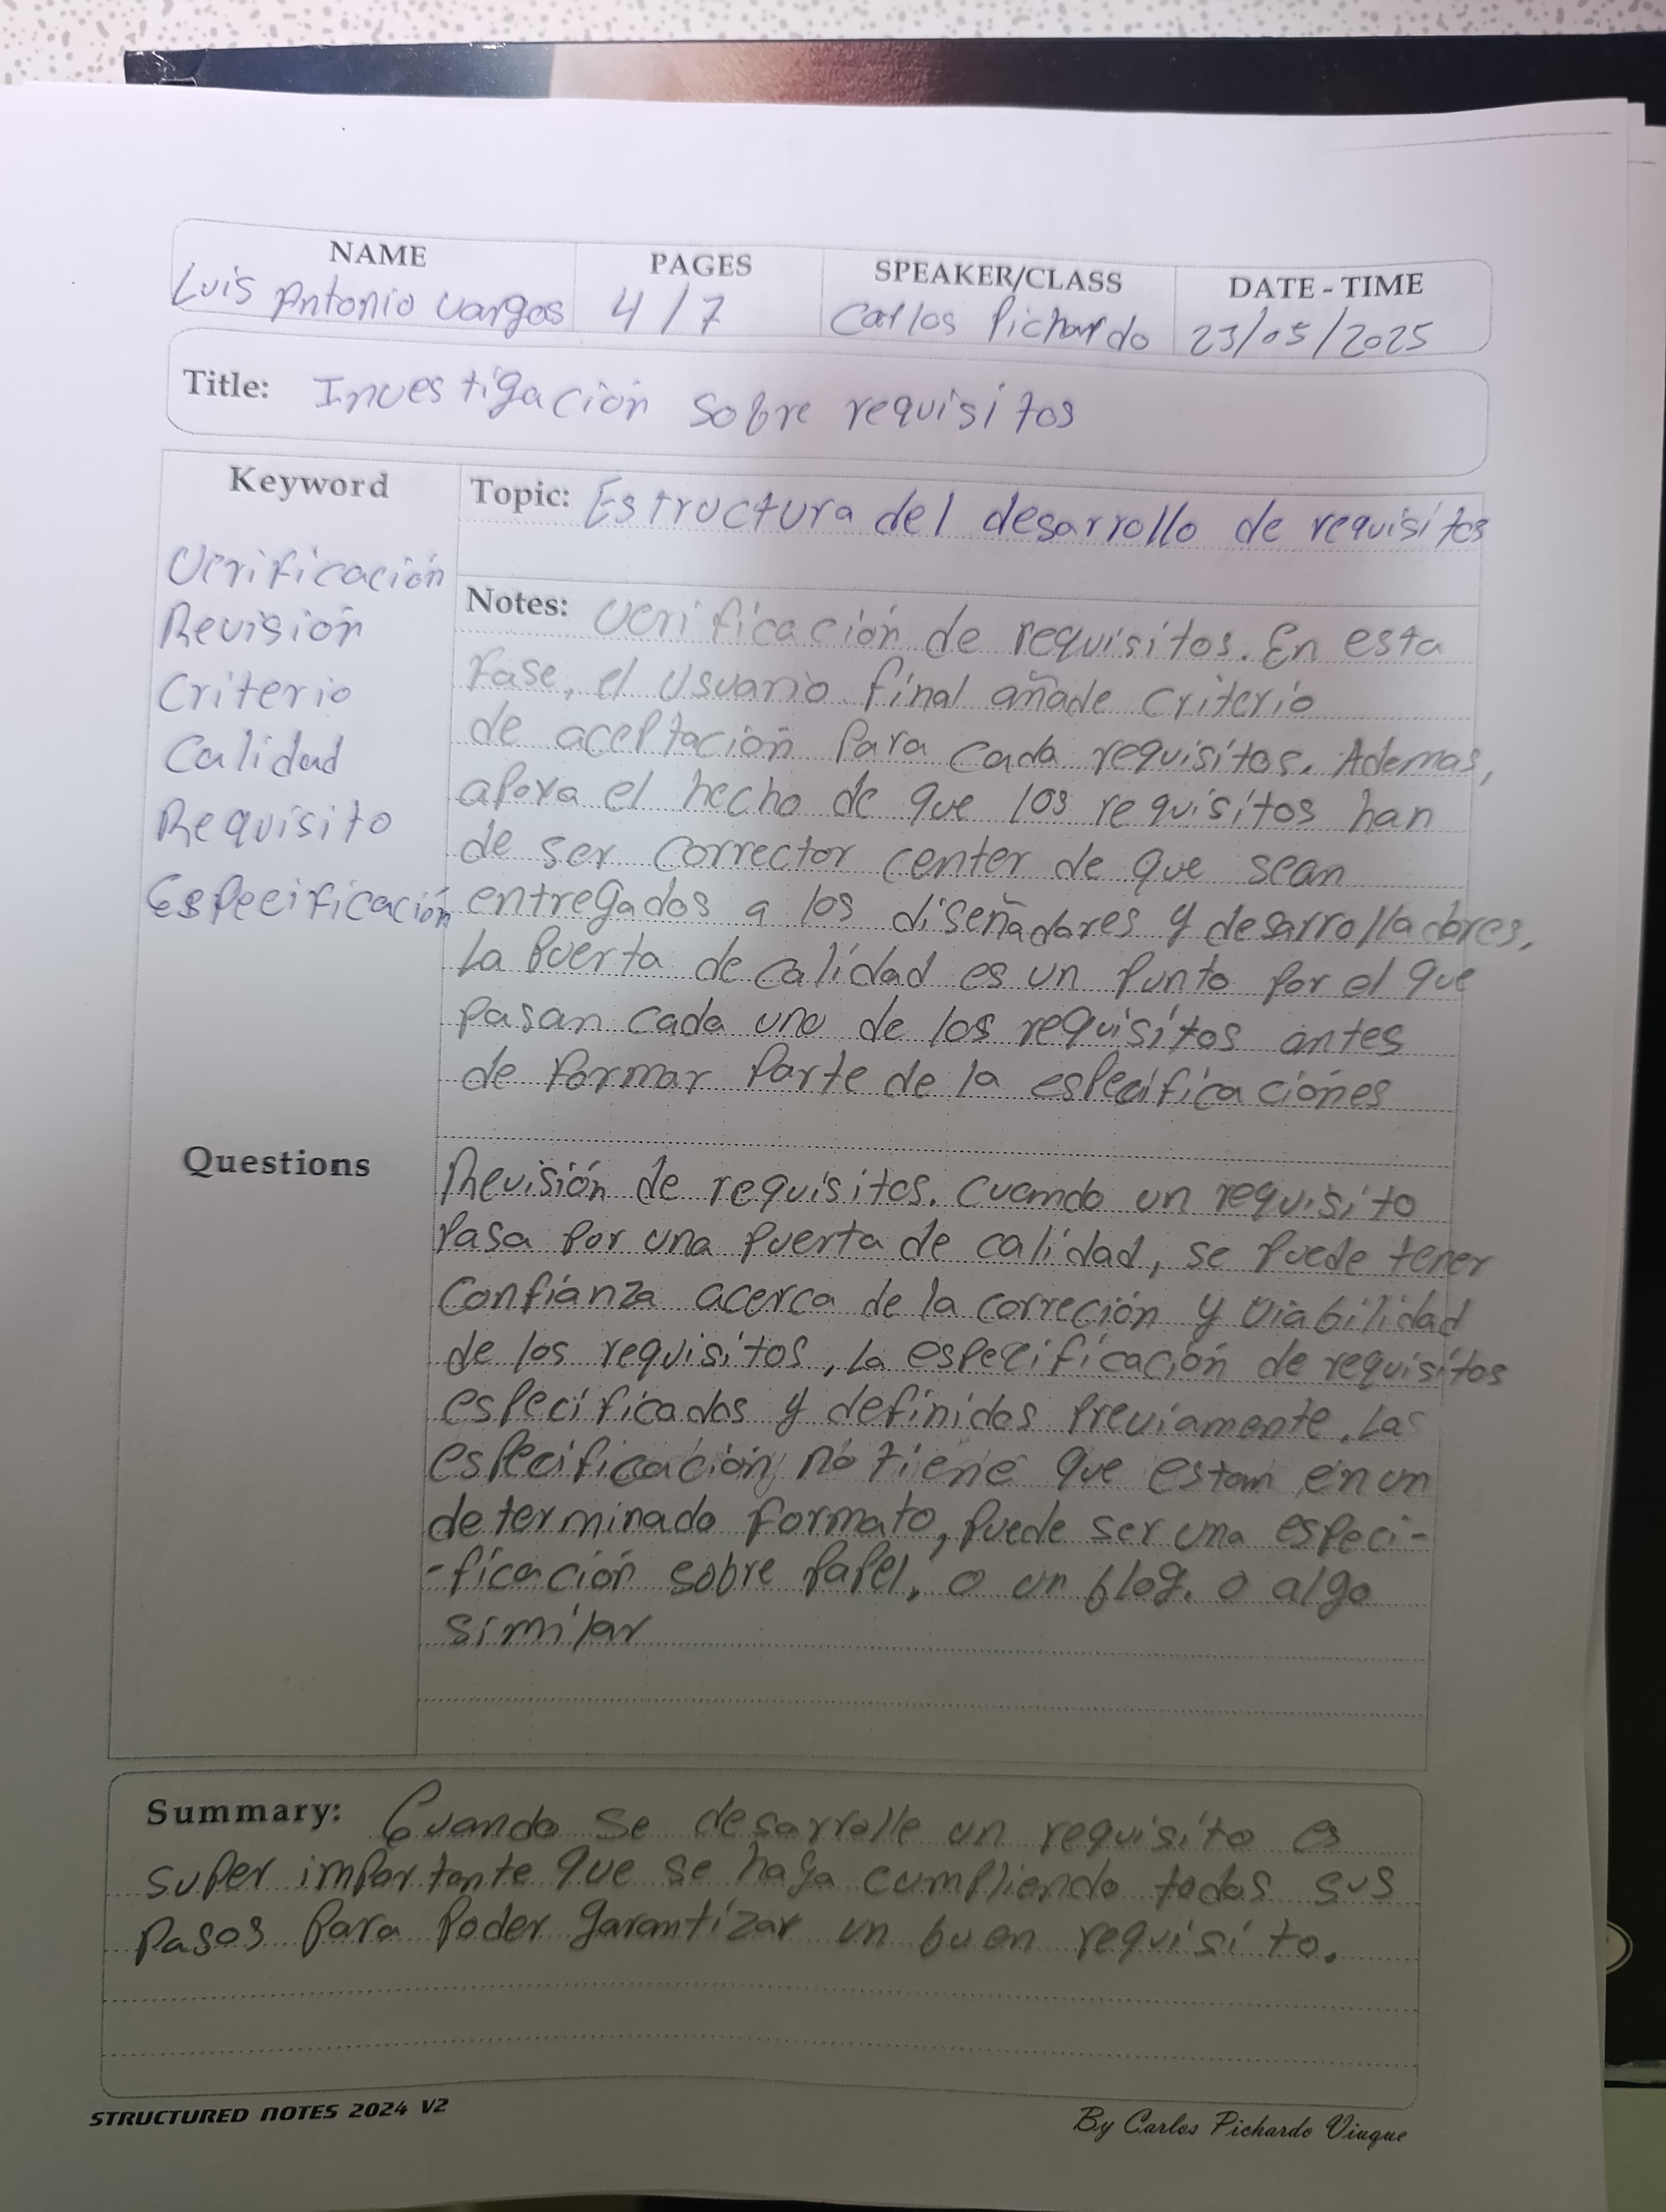 NAME
PAGES
SPEAKER/CLASS
DATE - TIME
Luis Antonio Vargas
4/7
Carlos Pichardo
23/05/2025
Title: Investigación sobre requisitos
Keyword
Topic: Estructura del desarrollo de requisitos
Verificación
Revisión
Criterio
Calidad
Requisito
Especificación
Notes: Verificación de requisitos. En esta
Fase, el usuario final añade criterio
de aceptación para cada requisitos. Ademas,
el hecho de que los requisitos han
de ser corrector center de que sean
entregados a los diseñadores y desarrolladores,
La Puerta de calidad es un punto por el que
pasan cada uno de los requisitos antes
de formar parte de la especificaciónes
Questions
Revisión de requisitos. Cuando un requisito
Pasa por una puerta de calidad, se puede tener
Confianza acerca de la correción y viabilidad
de los requisitos, la especificación de requisitos
especificados y definidos previamente. Las
especificación no tiene que estan en un
determinado formato, puede ser una especi-
-ficación sobre papel, o un blog. o algo
similar
Summary: Cuando se desarrolle un requisito es
super importante que se haga cumpliendo todos sus
pasos para poder garantizar un buen requisito.
STRUCTURED NOTES 2024 V2
By Carlos Pichardo Viuque